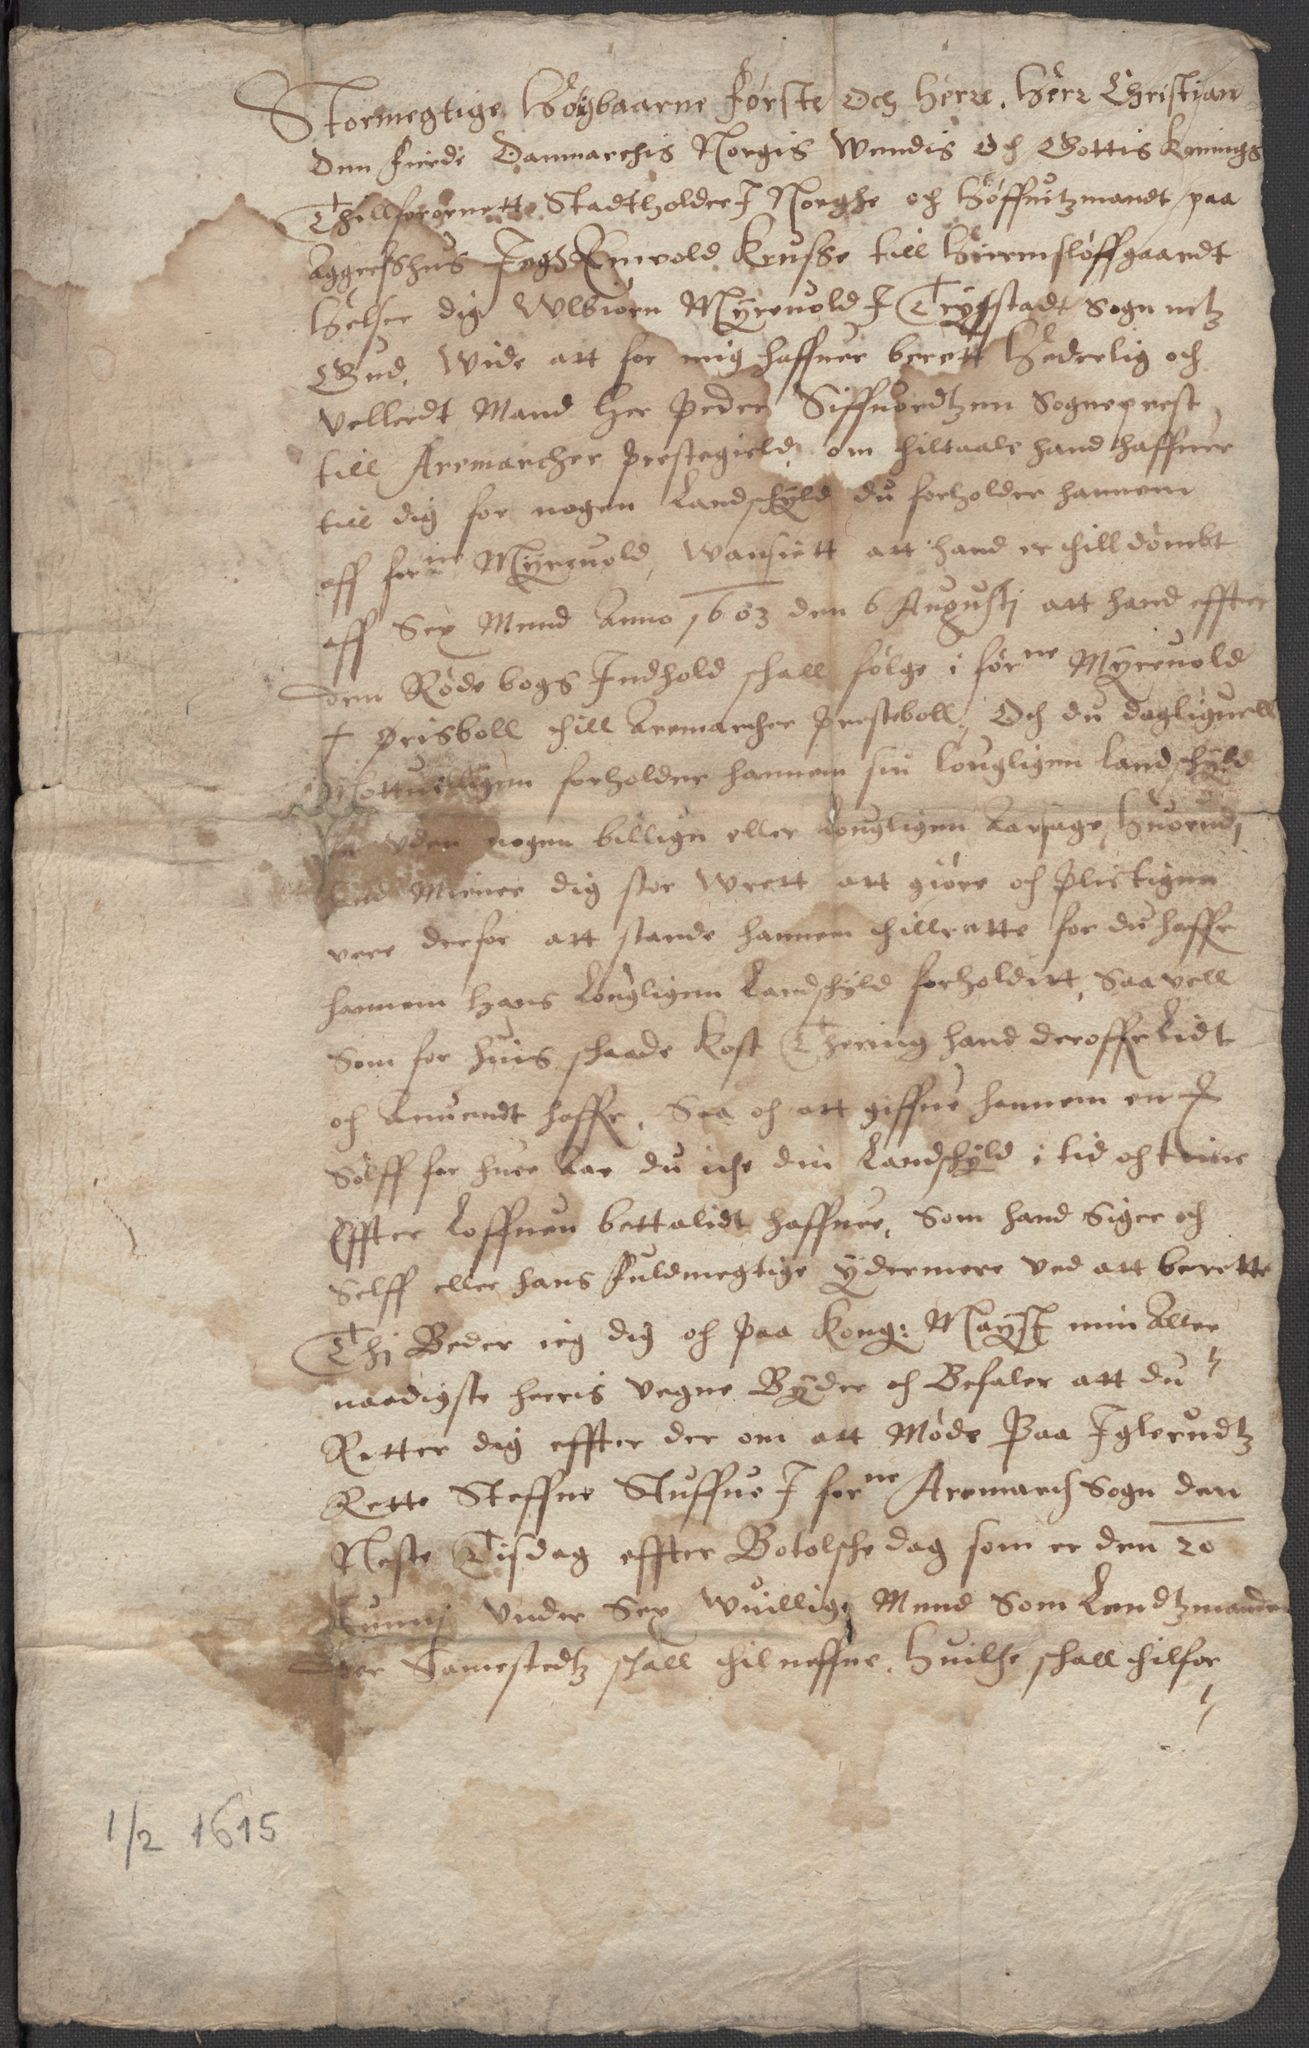 Stormegtige Høgbaarne Første Och Herre, Herr Christian
den fierde Danmarchis Norgis Wendis Och Gottis Konnings
Thillforornett Stadtholder I Norghe och Høffuitzmandt paa
Aggershus Jegh Enuold Krusse till Hiermsløffgaardt
Helser dig Wlbiørn Myreuold I Trygstadt Sogn metz
Gud, Wide att for mig haffuer berett Hederlig och
vellerdt Mand Her Peder Siffuerdtzøn Sogneprest
till Aremarcher prestegield, om thiltaale hand haffuer
till dig for nogen Landschyld du forholder hannem
aff forne Myreuold, Wanseett att hand er thill dømbt
aff Sex Mend Anno 1603 den 6 Augustj att hand effter
den Røde bogs Indhold schall følge i forne Myreuold
+ Ørisboll thill Aremarcher Presteboll, Och du dagliguell
Mottuilligen forholder hannem sin Lougligen Landschyld
for vden nogen billign eller Lougligen Aarsage, Huorudj
hand Miener dig stor Wrett att giøre och Plictigen
vere derfor att stande hannem thillrette for du haffr
hannem hans Lougligen Landschyld forholditt, Saauell
Som for huis schaade Kost Thering hand deroffr Lidt
och Anuendt haffr, Saa och att giffue hannem en
Sølff for huer Aar du iche din Landschyld i tid och time
Effter Loffuen bettalidt haffuer, Som hand Siger och
Selff eller hans Fuldmegtige ydermere ved att berette
Thj Beder ieg dig och paa Kong: Mayst min Aller
naadigste herris vegne Byder och Befaler att du
Retter dig effter der om att Møde Paa Iglerudtz
Rette Steffne Stuffue I forne Aremarch Sogn den
Neste Tisdag effter Botolsche dag som er den 20
Junnij Vnder Sex Wuillige Mend Som Lendtzmanden
der Samestedtz schall thilneffne, Huilche schall thilfor
1/2 1615